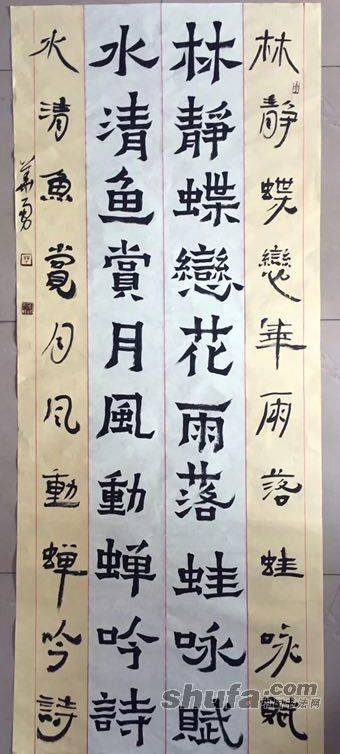 林靜蝶戀華雨落蛙咏
林靜蝶戀花雨落蛙咏賦
水清鱼賞月風動蝉吟詩
水清魚賞月风動蝉吟詩
shufa.com